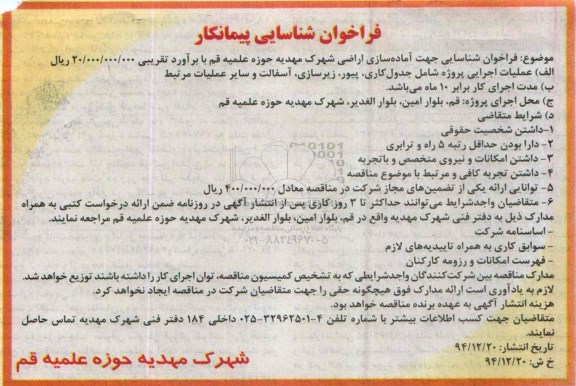 فراخوان شناسایی پیمانکار
موضوع: فراخوان شناسایی جهت آماده‌سازی اراضی شهرک مهدیه حوزه علمیه قم با برآورد تقریبی ۲۰/۰۰۰/۰۰۰/۰۰۰ ریال
الف) عملیات اجرایی پروژه شامل جدول‌کاری، پیور، زیرسازی، آسفالت و سایر عملیات مرتبط
ب) مدت اجرای کار برابر ۱۰ ماه می‌باشد.
ج) محل اجرای پروژه: قم، بلوار امین، بلوار الغدیر، شهرک مهدیه حوزه علمیه قم
د) شرایط متقاضی
۱- داشتن شخصیت حقوقی
۲- دارا بودن حداقل رتبه ۵ راه و ترابری
۳- داشتن امکانات و نیروی متخصص و باتجربه
۴- داشتن تجربه کافی و مرتبط با موضوع مناقصه
۵- توانایی ارائه یکی از تضمین‌های مجاز شرکت در مناقصه معادل ۴۰۰/۰۰۰/۰۰۰ ریال
۶- متقاضیان واجدشرایط می‌توانند حداکثر تا ۳ روز کاری پس از انتشار آگهی در روزنامه ضمن ارائه درخواست کتبی به همراه
مدارک ذیل به دفتر فنی شهرک مهدیه واقع در قم، بلوار امین، بلوار الغدیر، شهرک مهدیه حوزه علمیه قم مراجعه نمایند.
- اساسنامه شرکت
- سوابق کاری به همراه تاییدیه‌های لازم
- فهرست امکانات و رزومه کارکنان
مدارک مناقصه بین شرکت‌کنندگان واجدشرایطی که به تشخیص کمیسیون مناقصه، توان اجرای کار را داشته باشند توزیع خواهد شد.
لازم به یادآوری است ارائه مدارک فوق هیچگونه حقی را جهت متقاضیان شرکت در مناقصه ایجاد نخواهد کرد.
هزینه انتشار آگهی به عهده برنده مناقصه خواهد بود.
متقاضیان جهت کسب اطلاعات بیشتر با شماره تلفن ۴-۳۲۹۶۲۵۰۱-۰۲۵ داخلی ۱۸۴ دفتر فنی شهرک مهدیه تماس حاصل
نمایند.
تاریخ انتشار: ۹۴/۱۲/۲۰
خ ش: ۹۴/۱۲/۲۰
شهرک مهدیه حوزه علمیه قم